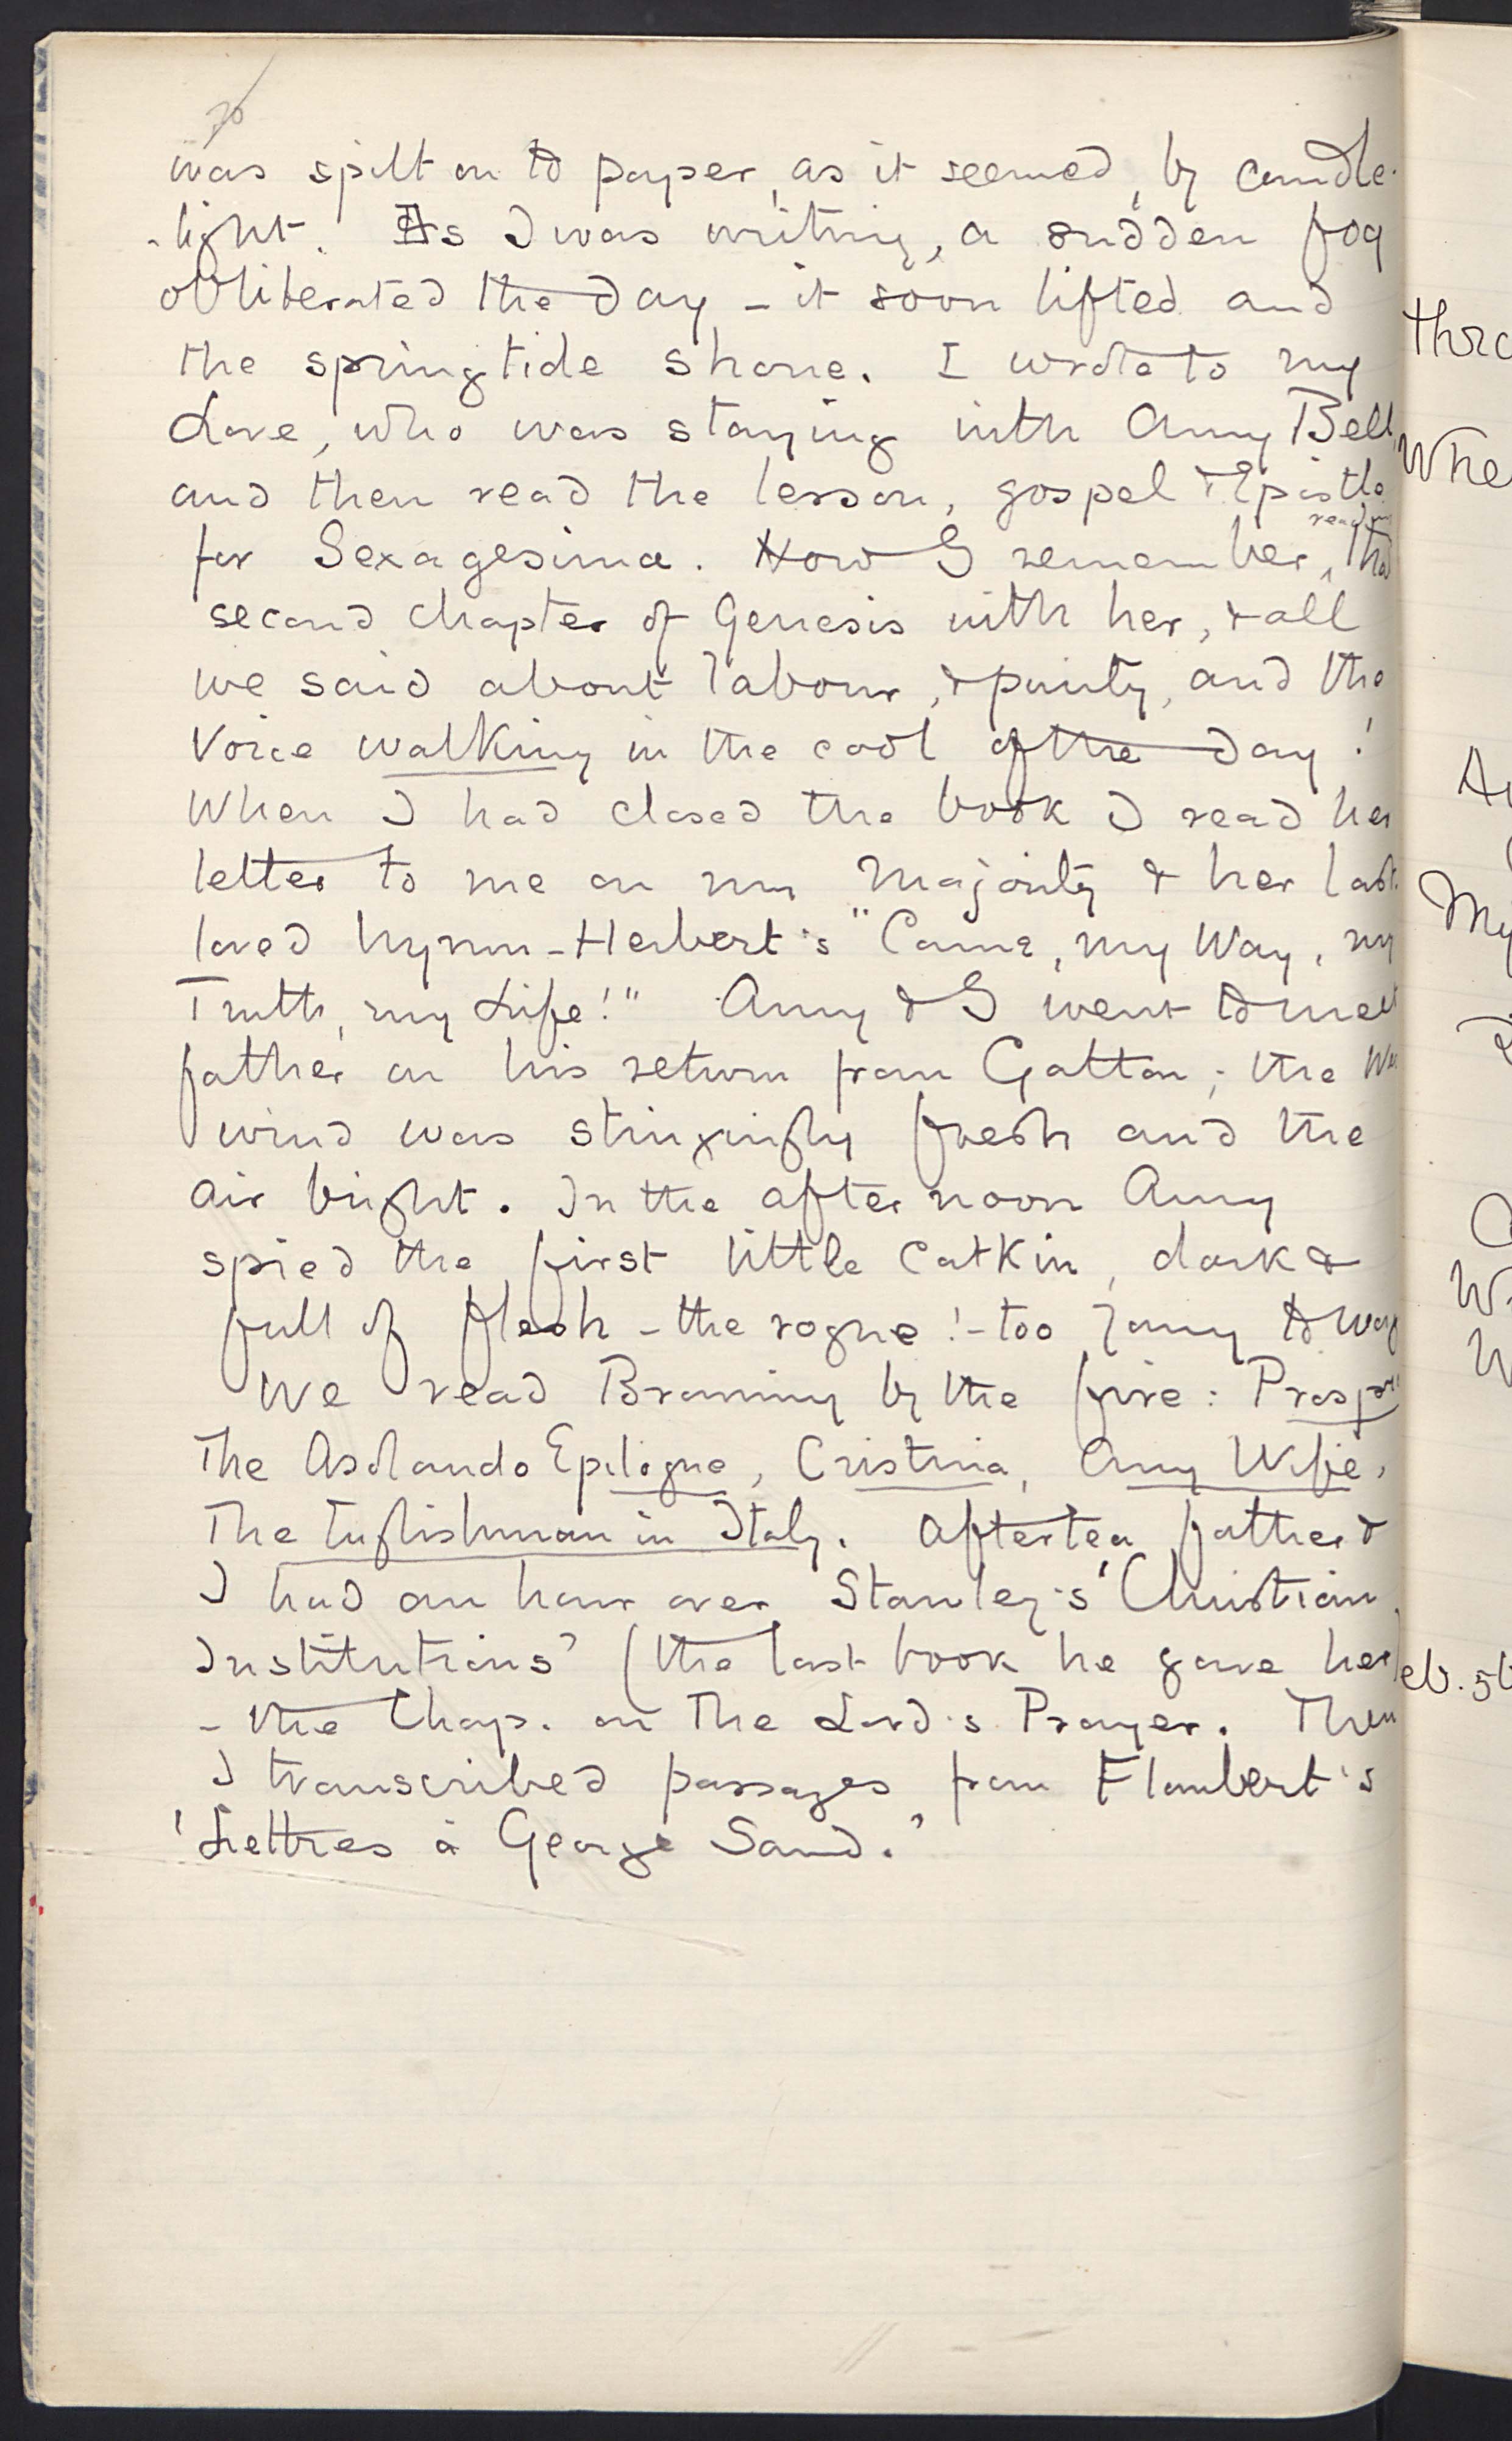 20
was spilt on to paper, as it seemed, by candle-
-light. As I was writing, a sudden fog
obliterated the day – it soon lifted and
the springtide shone. I wrote to my
Love, who was staying with Amy Bell,
and then read the lesson, gospel & Epistle
reading
for Sexagesima. How I remember, the
second chapter of Genesis with her, & all
we said about labour, & purity, and the
Voice walking in the cool of the day!
When I had closed the book I read her
letter to me on my Majority & her last
loved hymn – Herbert's "Come, my Way, my
Truth, my Life!" Amy & I went to meet
father on his return from Gatton; the
wind was stingingly fresh and the
air bright. In the afternoon Amy
spied the first little catkin, dark &
full of flesh – the rogue! – too young to wag
We read Browning by the fire:
The Asolando Epilogue, Cristina, Any Wife,
The Englishman in Italy. After tea father &
I had an hour over Stanley's 'Christian
Institutions' (the last book he gave her)
– the Chap. on The Lord's Prayer. Then
I transcribed passages from Flaubert's
'Lettres à George Sand.'